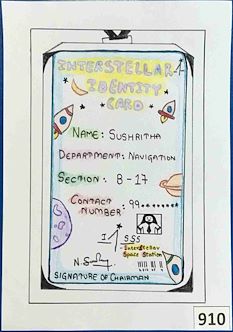 INTERSTELLAR
IDENTITY
CARD
NAME: SUSHRITHA
DEPARTMENT: NAVIGATION
SECTION: 8-17
CONTACT
NUMBER: 99********
SSS
Interstellar
Space Station
N.S
SIGNATURE OF CHAIRMAN
910